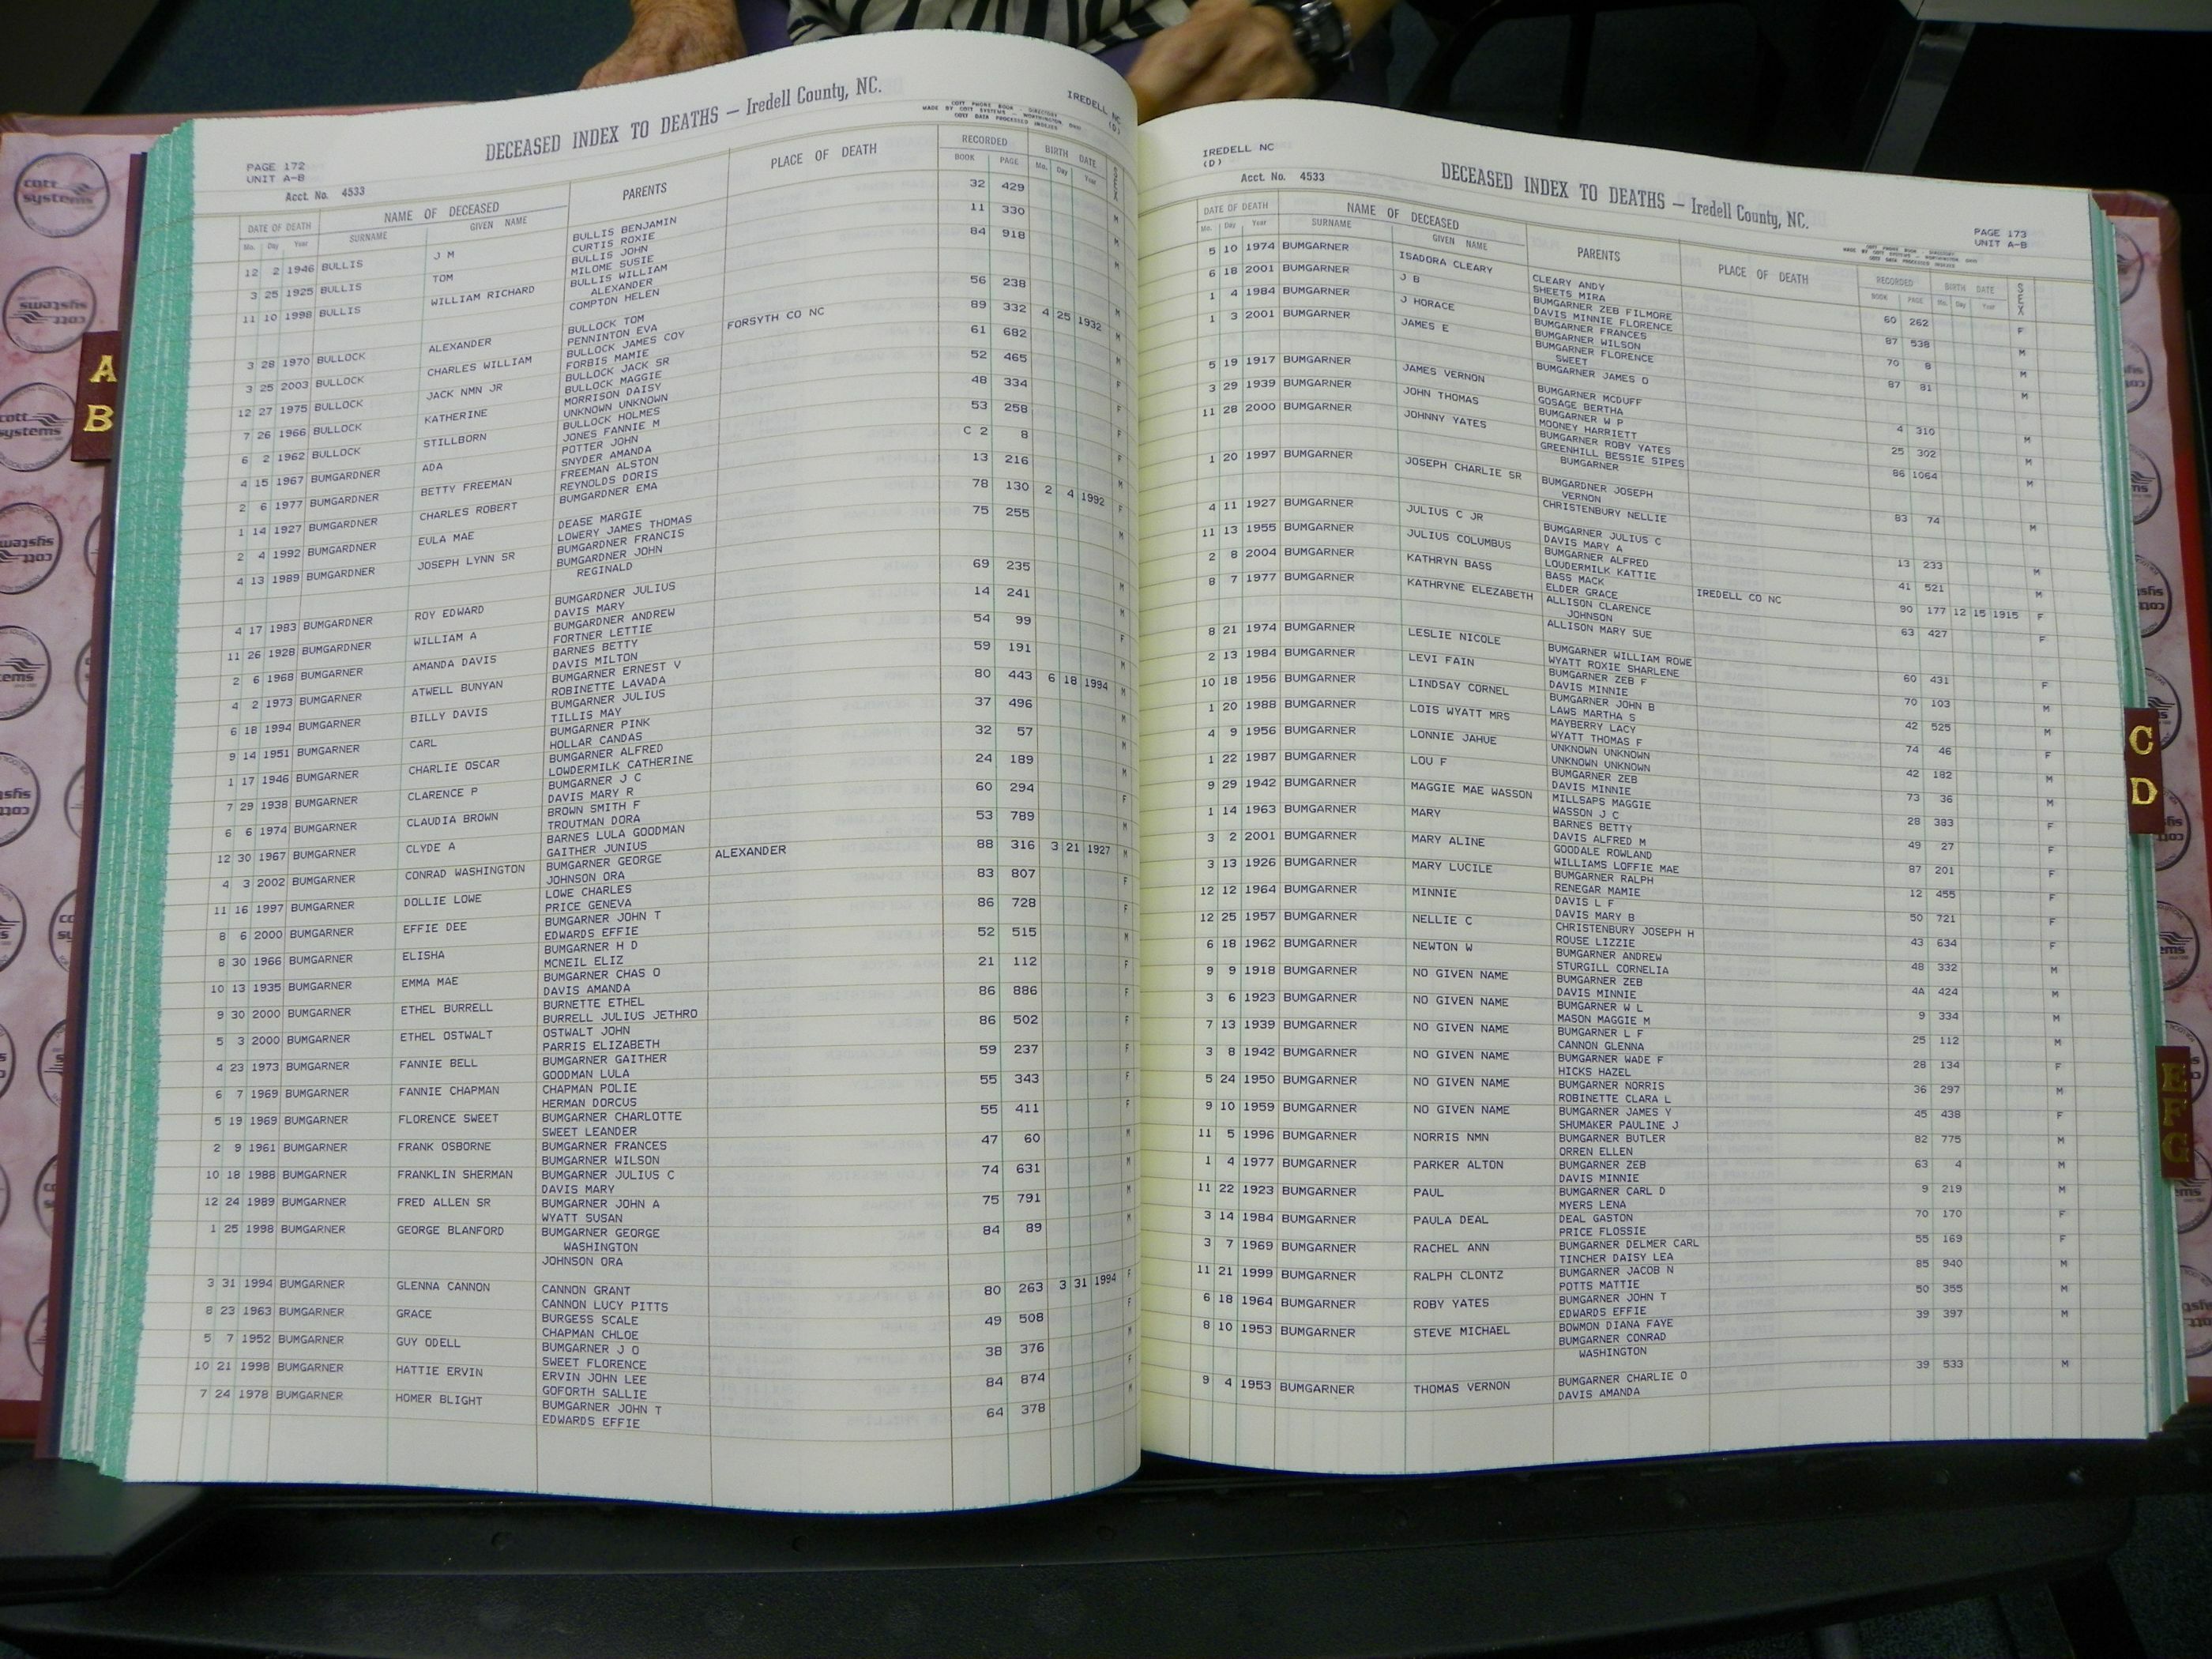 IREDELL NC
(D)
DECEASED INDEX TO DEATHS — Iredell County, NC.
COTT PHONE BOOK - DIRECTORY
MADE BY COTT SYSTEMS - WORTHINGTON OHIO
COTT DATA PROCESSED INDEXES
PAGE 172
UNIT A-B
Acct. No. 4533
DATE OF DEATH NAME OF DECEASED PARENTS PLACE OF DEATH RECORDED BIRTH DATE SEX
Mo. Day Year SURNAME GIVEN NAME BOOK PAGE Mo. Day Year
12 2 1946 BULLIS J M BULLIS BENJAMIN 32 429 M
CURTIS ROXIE
3 25 1925 BULLIS TOM BULLIS JOHN 11 330 M
MILOME SUSIE
11 10 1998 BULLIS WILLIAM RICHARD BULLIS WILLIAM 84 918 M
ALEXANDER
COMPTON HELEN
3 28 1970 BULLOCK ALEXANDER BULLOCK TOM 56 238 M
PENNINTON EVA
3 25 2003 BULLOCK CHARLES WILLIAM BULLOCK JAMES COY FORSYTH CO NC 89 332 4 25 1932 M
FORBIS MAMIE
12 27 1975 BULLOCK JACK NMN JR BULLOCK JACK SR 61 682 M
BULLOCK MAGGIE
7 26 1966 BULLOCK KATHERINE MORRISON DAISY 52 465 F
UNKNOWN UNKNOWN
6 2 1962 BULLOCK STILLBORN BULLOCK HOLMES 48 334 F
JONES FANNIE M
4 15 1967 BUMGARDNER ADA POTTER JOHN 53 258 F
SNYDER AMANDA
2 6 1977 BUMGARDNER BETTY FREEMAN FREEMAN ALSTON C 2 8
REYNOLDS DORIS
1 14 1927 BUMGARDNER CHARLES ROBERT BUMGARDNER EMA 13 216 M
2 4 1992 BUMGARDNER EULA MAE DEASE MARGIE 78 130 2 4 1992 F
LOWERY JAMES THOMAS
4 13 1989 BUMGARDNER JOSEPH LYNN SR BUMGARDNER FRANCIS 75 255 M
BUMGARDNER JOHN
REGINALD
4 17 1983 BUMGARDNER ROY EDWARD BUMGARDNER JULIUS 69 235 M
DAVIS MARY
11 26 1928 BUMGARDNER WILLIAM A BUMGARDNER ANDREW 14 241 M
FORTNER LETTIE
2 6 1968 BUMGARNER AMANDA DAVIS BARNES BETTY 54 99 F
DAVIS MILTON
4 2 1973 BUMGARNER ATWELL BUNYAN BUMGARNER ERNEST V 59 191 M
ROBINETTE LAVADA
6 18 1994 BUMGARNER BILLY DAVIS BUMGARNER JULIUS 80 443 6 18 1994 M
TILLIS MAY
9 14 1951 BUMGARNER CARL BUMGARNER PINK 37 496 M
HOLLAR CANDAS
1 17 1946 BUMGARNER CHARLIE OSCAR BUMGARNER ALFRED 32 57 M
LOWDERMILK CATHERINE
7 29 1938 BUMGARNER CLARENCE P BUMGARNER J C 24 189 M
DAVIS MARY R
6 6 1974 BUMGARNER CLAUDIA BROWN BROWN SMITH F 60 294 F
TROUTMAN DORA
12 30 1967 BUMGARNER CLYDE A BARNES LULA GOODMAN 53 789 M
GAITHER JUNIUS
4 3 2002 BUMGARNER CONRAD WASHINGTON BUMGARNER GEORGE ALEXANDER 88 316 3 21 1927 M
JOHNSON ORA
11 16 1997 BUMGARNER DOLLIE LOWE LOWE CHARLES 83 807 F
PRICE GENEVA
8 6 2000 BUMGARNER EFFIE DEE BUMGARNER JOHN T 86 728 F
EDWARDS EFFIE
8 30 1966 BUMGARNER ELISHA BUMGARNER H D 52 515 M
MCNEIL ELIZ
10 13 1935 BUMGARNER EMMA MAE BUMGARNER CHAS O 21 112 F
DAVIS AMANDA
9 30 2000 BUMGARNER ETHEL BURRELL BURNETTE ETHEL 86 886 F
BURRELL JULIUS JETHRO
5 3 2000 BUMGARNER ETHEL OSTWALT OSTWALT JOHN 86 502 F
PARRIS ELIZABETH
4 23 1973 BUMGARNER FANNIE BELL BUMGARNER GAITHER 59 237 F
GOODMAN LULA
6 7 1969 BUMGARNER FANNIE CHAPMAN CHAPMAN POLIE 55 343 F
HERMAN DORCUS
5 19 1969 BUMGARNER FLORENCE SWEET BUMGARNER CHARLOTTE 55 411 F
SWEET LEANDER
2 9 1961 BUMGARNER FRANK OSBORNE BUMGARNER FRANCES 47 60 M
BUMGARNER WILSON
10 18 1988 BUMGARNER FRANKLIN SHERMAN BUMGARNER JULIUS C 74 631 M
DAVIS MARY
12 24 1989 BUMGARNER FRED ALLEN SR BUMGARNER JOHN A 75 791 M
WYATT SUSAN
1 25 1998 BUMGARNER GEORGE BLANFORD BUMGARNER GEORGE 84 89 M
WASHINGTON
JOHNSON ORA
3 31 1994 BUMGARNER GLENNA CANNON CANNON GRANT 80 263 3 31 1994 F
CANNON LUCY PITTS
8 23 1963 BUMGARNER GRACE BURGESS SCALE 49 508 F
CHAPMAN CHLOE
5 7 1952 BUMGARNER GUY ODELL BUMGARNER J O 38 376 M
SWEET FLORENCE
10 21 1998 BUMGARNER HATTIE ERVIN ERVIN JOHN LEE 84 874 F
GOFORTH SALLIE
7 24 1978 BUMGARNER HOMER BLIGHT BUMGARNER JOHN T 64 378 M
EDWARDS EFFIE
IREDELL NC
(D)
DECEASED INDEX TO DEATHS — Iredell County, NC.
Acct. No. 4533
PAGE 173
UNIT A-B
COTT PHONE BOOK - DIRECTORY
MADE BY COTT SYSTEMS - WORTHINGTON OHIO
COTT DATA PROCESSED INDEXES
DATE OF DEATH NAME OF DECEASED PARENTS PLACE OF DEATH RECORDED BIRTH DATE SEX
Mo. Day Year SURNAME GIVEN NAME BOOK PAGE Mo. Day Year
5 10 1974 BUMGARNER ISADORA CLEARY CLEARY ANDY 60 262 F
SHEETS MIRA
6 18 2001 BUMGARNER J B BUMGARNER ZEB FILMORE 87 538 M
DAVIS MINNIE FLORENCE
1 4 1984 BUMGARNER J HORACE BUMGARNER FRANCES 70 8 M
BUMGARNER WILSON
1 3 2001 BUMGARNER JAMES E BUMGARNER FLORENCE 87 81 M
SWEET
BUMGARNER JAMES O
5 19 1917 BUMGARNER JAMES VERNON BUMGARNER MCDUFF 4 310 M
GOSAGE BERTHA
3 29 1939 BUMGARNER JOHN THOMAS BUMGARNER W P 25 302 M
MOONEY HARRIETT
11 28 2000 BUMGARNER JOHNNY YATES BUMGARNER ROBY YATES 86 1064 M
GREENHILL BESSIE SIPES
BUMGARNER
1 20 1997 BUMGARNER JOSEPH CHARLIE SR BUMGARDNER JOSEPH 83 74 M
VERNON
CHRISTENBURY NELLIE
4 11 1927 BUMGARNER JULIUS C JR BUMGARNER JULIUS C 13 233 M
DAVIS MARY A
11 13 1955 BUMGARNER JULIUS COLUMBUS BUMGARNER ALFRED 41 521 M
LOUDERMILK KATTIE
2 8 2004 BUMGARNER KATHRYN BASS BASS MACK IREDELL CO NC 90 177 12 15 1915 F
ELDER GRACE
8 7 1977 BUMGARNER KATHRYNE ELEZABETH ALLISON CLARENCE 63 427 F
JOHNSON
ALLISON MARY SUE
8 21 1974 BUMGARNER LESLIE NICOLE BUMGARNER WILLIAM ROWE 60 431 F
WYATT ROXIE SHARLENE
2 13 1984 BUMGARNER LEVI FAIN BUMGARNER ZEB F 70 103 M
DAVIS MINNIE
10 18 1956 BUMGARNER LINDSAY CORNEL BUMGARNER JOHN B 42 525 M
LAWS MARTHA S
1 20 1988 BUMGARNER LOIS WYATT MRS MAYBERRY LACY 74 46 F
WYATT THOMAS F
4 9 1956 BUMGARNER LONNIE JAHUE UNKNOWN UNKNOWN 42 182 M
UNKNOWN UNKNOWN
1 22 1987 BUMGARNER LOU F BUMGARNER ZEB 73 36 M
DAVIS MINNIE
9 29 1942 BUMGARNER MAGGIE MAE WASSON MILLSAPS MAGGIE 28 383 F
WASSON J C
1 14 1963 BUMGARNER MARY BARNES BETTY 49 27 F
DAVIS ALFRED M
3 2 2001 BUMGARNER MARY ALINE GOODALE ROWLAND 87 201 F
WILLIAMS LOFFIE MAE
3 13 1926 BUMGARNER MARY LUCILE BUMGARNER RALPH 12 455 F
RENEGAR MAMIE
12 12 1964 BUMGARNER MINNIE DAVIS L F 50 721 F
DAVIS MARY B
12 25 1957 BUMGARNER NELLIE C CHRISTENBURY JOSEPH H 43 634 F
ROUSE LIZZIE
6 18 1962 BUMGARNER NEWTON W BUMGARNER ANDREW 48 332 M
STURGILL CORNELIA
9 9 1918 BUMGARNER NO GIVEN NAME BUMGARNER ZEB 4A 424 M
DAVIS MINNIE
3 6 1923 BUMGARNER NO GIVEN NAME BUMGARNER W L 9 334 M
MASON MAGGIE M
7 13 1939 BUMGARNER NO GIVEN NAME BUMGARNER L F 25 112 M
CANNON GLENNA
3 8 1942 BUMGARNER NO GIVEN NAME BUMGARNER WADE F 28 134 F
HICKS HAZEL
5 24 1950 BUMGARNER NO GIVEN NAME BUMGARNER NORRIS 36 297 M
ROBINETTE CLARA L
9 10 1959 BUMGARNER NO GIVEN NAME BUMGARNER JAMES Y 45 438 F
SHUMAKER PAULINE J
11 5 1996 BUMGARNER NORRIS NMN BUMGARNER BUTLER 82 775 M
ORREN ELLEN
1 4 1977 BUMGARNER PARKER ALTON BUMGARNER ZEB 63 4 M
DAVIS MINNIE
11 22 1923 BUMGARNER PAUL BUMGARNER CARL D 9 219 M
MYERS LENA
3 14 1984 BUMGARNER PAULA DEAL DEAL GASTON 70 170 F
PRICE FLOSSIE
3 7 1969 BUMGARNER RACHEL ANN BUMGARNER DELMER CARL 55 169 F
TINCHER DAISY LEA
11 21 1999 BUMGARNER RALPH CLONTZ BUMGARNER JACOB N 85 940 M
POTTS MATTIE
6 18 1964 BUMGARNER ROBY YATES BUMGARNER JOHN T 50 355 M
EDWARDS EFFIE
8 10 1953 BUMGARNER STEVE MICHAEL BOWMON DIANA FAYE 39 397 M
BUMGARNER CONRAD
WASHINGTON
9 4 1953 BUMGARNER THOMAS VERNON BUMGARNER CHARLIE O 39 533 M
DAVIS AMANDA
A
B
C
D
E
F
G
cott
systems